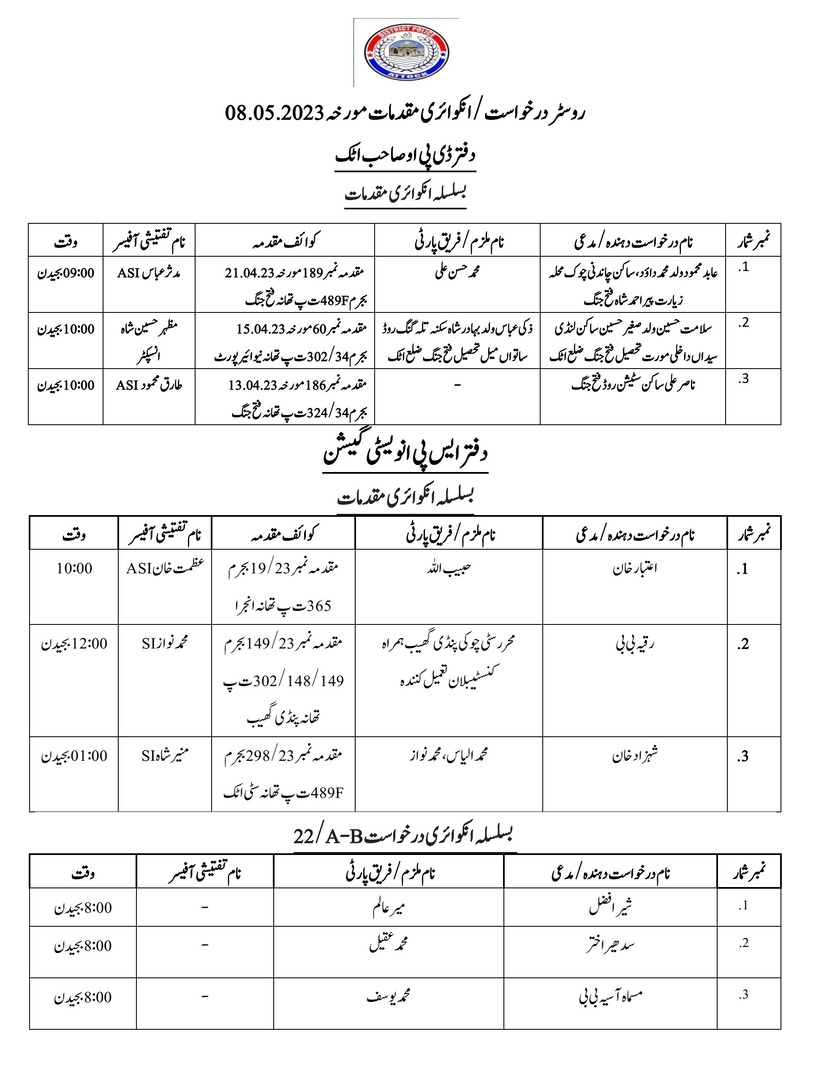 DISTRICT POLICE
ATTOCK
روسٹر درخواست/انکوائری مقدمات مورخہ 08.05.2023
دفتر ڈی پی او صاحب اٹک
بسلسلہ انکوائری مقدمات
نمبر شمار نام درخواست دہندہ/مدعی نام ملزم/فریق پارٹی کوائف مقدمہ نام تفتیشی آفیسر وقت
1. عابد محمود ولد محمد داؤد، ساکن چاندنی چوک محلہ محمد حسن علی مقدمہ نمبر 189 مورخہ 21.04.23 مدثر عباس ASI 09:00 بجے دن
زیارت پیر احمد شاہ فتح جنگ بجرم 489F ت پ تھانہ فتح جنگ
2. سلامت حسین ولد صغیر حسین ساکن لنڈی ذکی عباس ولد بہادر شاہ سکنہ تلہ گنگ روڈ مقدمہ نمبر 60 مورخہ 15.04.23 مظہر حسین شاہ 10:00 بجے دن
سیداں داخلی مورت تحصیل فتح جنگ ضلع اٹک ساتواں میل تحصیل فتح جنگ ضلع اٹک بجرم 302/34 ت پ تھانہ نیو ائیرپورٹ انسپکٹر
3. ناصر علی ساکن سٹیشن روڈ فتح جنگ - مقدمہ نمبر 186 مورخہ 13.04.23 طارق محمود ASI 10:00 بجے دن
بجرم 324/34 ت پ تھانہ فتح جنگ
دفتر ایس پی انویسٹی گیشن
بسلسلہ انکوائری مقدمات
نمبر شمار نام درخواست دہندہ/مدعی نام ملزم/فریق پارٹی کوائف مقدمہ نام تفتیشی آفیسر وقت
1. اعتبار خان حبیب اللہ مقدمہ نمبر 19/23 بجرم عظمت خان ASI 10:00
365 ت پ تھانہ انجرا
2. رقیہ بی بی محرر سٹی چوکی پنڈی گھیب ہمراہ مقدمہ نمبر 149/23 بجرم محمد نواز SI 12:00 بجے دن
کنسٹیبلان تعمیل کنندہ 302/148/149 ت پ
تھانہ پنڈی گھیب
3. شہزاد خان محمد الیاس، محمد نواز مقدمہ نمبر 298/23 بجرم منیر شاہ SI 01:00 بجے دن
489F ت پ تھانہ سٹی اٹک
بسلسلہ انکوائری درخواست 22/A-B
نمبر شمار نام درخواست دہندہ/مدعی نام ملزم/فریق پارٹی نام تفتیشی آفیسر وقت
1. شیر افضل میر عالم - 8:00 بجے دن
2. سدھیر اختر محمد عقیل - 8:00 بجے دن
3. مسماہ آسیہ بی بی محمد یوسف - 8:00 بجے دن